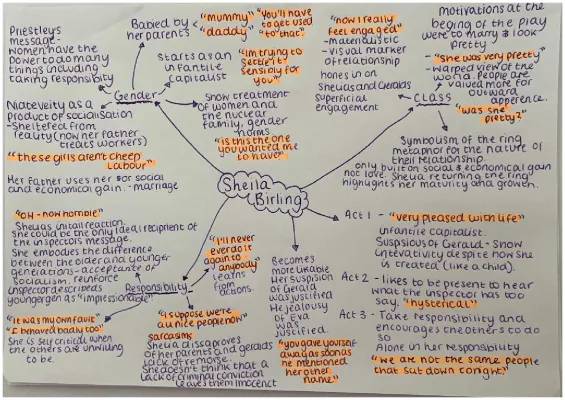 Priestleys
message -
women have the
power to do many
things including
taking responsibility
Babied by
her parents
"mummy"
"daddy"
"You'll have
to get used
to that"
Gender
Starts as an
infantile
capitalist
"Im trying to
settle it
sensibly for
you"
Niateveity as a
product of socialisation
- Sheltered from
reality (now her father
treats workers)
"these girls aren't cheep
labour"
Her father uses her for social
and economical gain - marriage
Show treatment
of women and
the nuclear
family, gender
norms
"is this the one
you wanted me
to have"
"now I really
feel engaged"
- materialistic
- visual marker
of relationship
hones in on
Sheilas and Geralds
superficial
engagement
motivations at the
beging of the play
were to marry & look
pretty
- "She was very pretty"
- warped view of the
world. People are
valued more for
outward
apperence.
"was she
pretty?"
Class
Symbolism of the ring
metaphor for the nature of
their relationship
only built on social & economical gain
not love. Sheila returning the ring
highlights her maturity and growth.
Sheila
Birling
"Oh - how horrible"
Sheilas initail reaction.
She could be the only ideal recipient of
the inspectors message.
She embodies the difference
between the older and younger
generations - acceptante of
socialism, reinforce
inspector describes
younger gen as "impressionable"
Responsibility
"I'll never
ever do it
again to
anybody"
learns
from
actions.
"It was my own fault"
"I behaved badly too"
She is self critical when
the others are unwilling
to be.
"I suppose we're
all nice people now"
sarcasims
Sheila dissaproves
of her parents and geralds
lack of remorse.
She doesn't think that a
lack of criminal conviction
leaves them innocent
Becomes
more likable
Her suspision
of Gerald
was justified
He jealousy
of Eva
was
justified.
"you gave yourself
away as soon as
he mentioned
her other
name"
Act 1 - "very pleased with life"
infantile capitalist.
Suspisious of Gerald - Show
intevativity despite how she
is treated (like a child).
Act 2 - likes to be present to hear
what the inspector has too
say. "hysterical"
Act 3 - Take responsibility and
encourages the others to do
so
Alone in her responsibility
"we are not the same people
that sat down tonight"